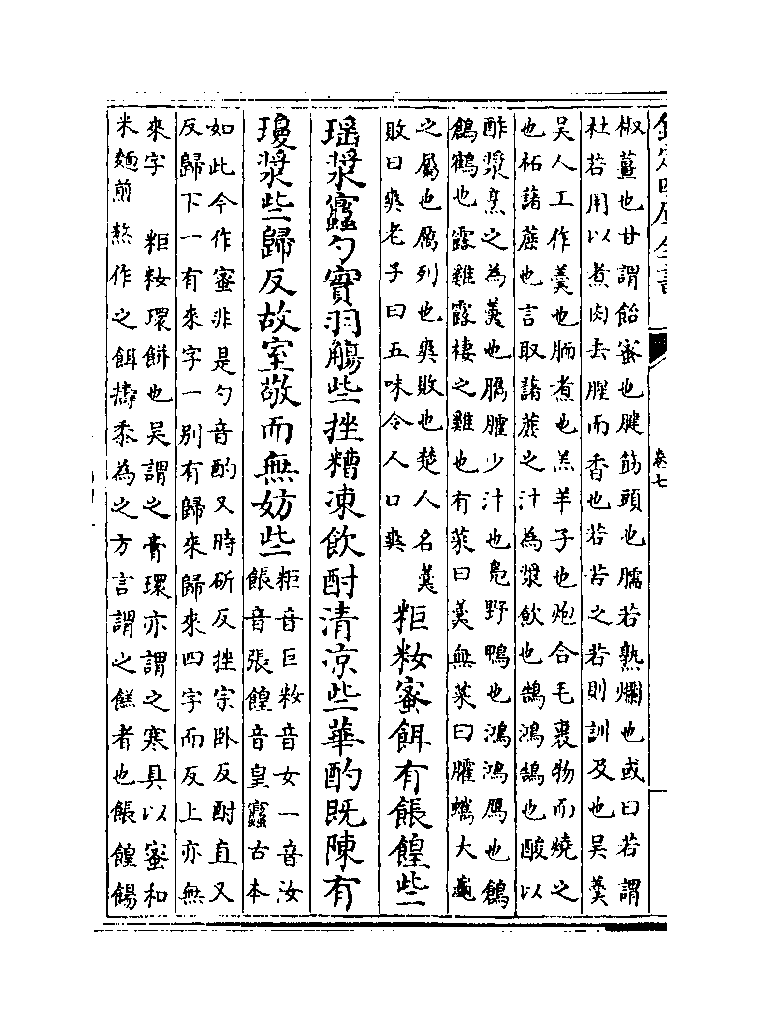 欽定四庫全書
卷七
椒薑也甘謂飴蜜也腱筋頭也臑若熟爛也或曰若謂
杜若用以煮肉去腥而香也若若之若則訓及也吴羮
吴人工作羮也胹煮也羔羊子也炮合毛裹物而燒之
也柘藷蔗也言取藷蔗之汁為漿飲也鵠鴻鵠也酸以
酢漿烹之為羮也臇臛少汁也鳬野鴨也鴻鴻鴈也鶬
鶬鶴也露雞露棲之雞也有菜曰羮無菜曰臛蠵大龜
之屬也厲列也爽敗也楚人名羮
敗曰爽老子曰五味令人口爽
粔籹蜜餌有餦餭些
瑶漿蜜勺實羽觴些挫糟凍飲酎清凉些華酌既陳有
瓊漿些歸反故室敬而無妨些
粔音巨籹音女一音汝
餦音張餭音皇蜜古本
如此今作蜜非是勺音酌又時斫反挫宗卧反酎直又
反歸下一有來字一别有歸來歸來四字而反上亦無
來字 粔籹環餅也吴謂之膏環亦謂之寒具以蜜和
米麵煎熬作之餌擣黍為之方言謂之餻者也餦餭餳